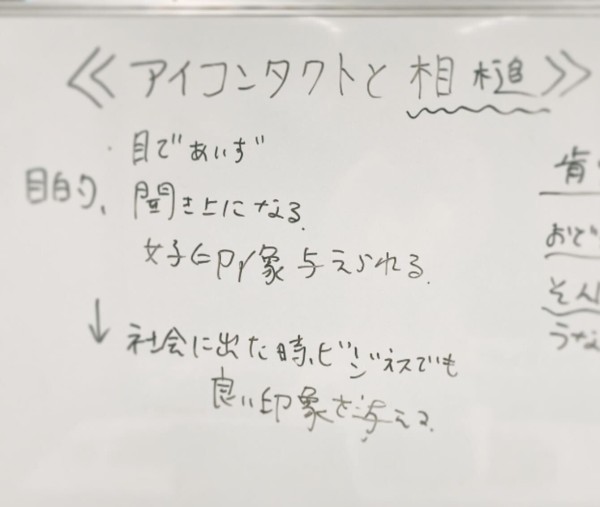 ≪アイコンタクトと相槌≫
・目であいず
目的、聞き上になる。
女子に印象与えられる。
↓ 社会に出た時、ビジネスでも
良い印象を与える。
肯
おど
そん
うな